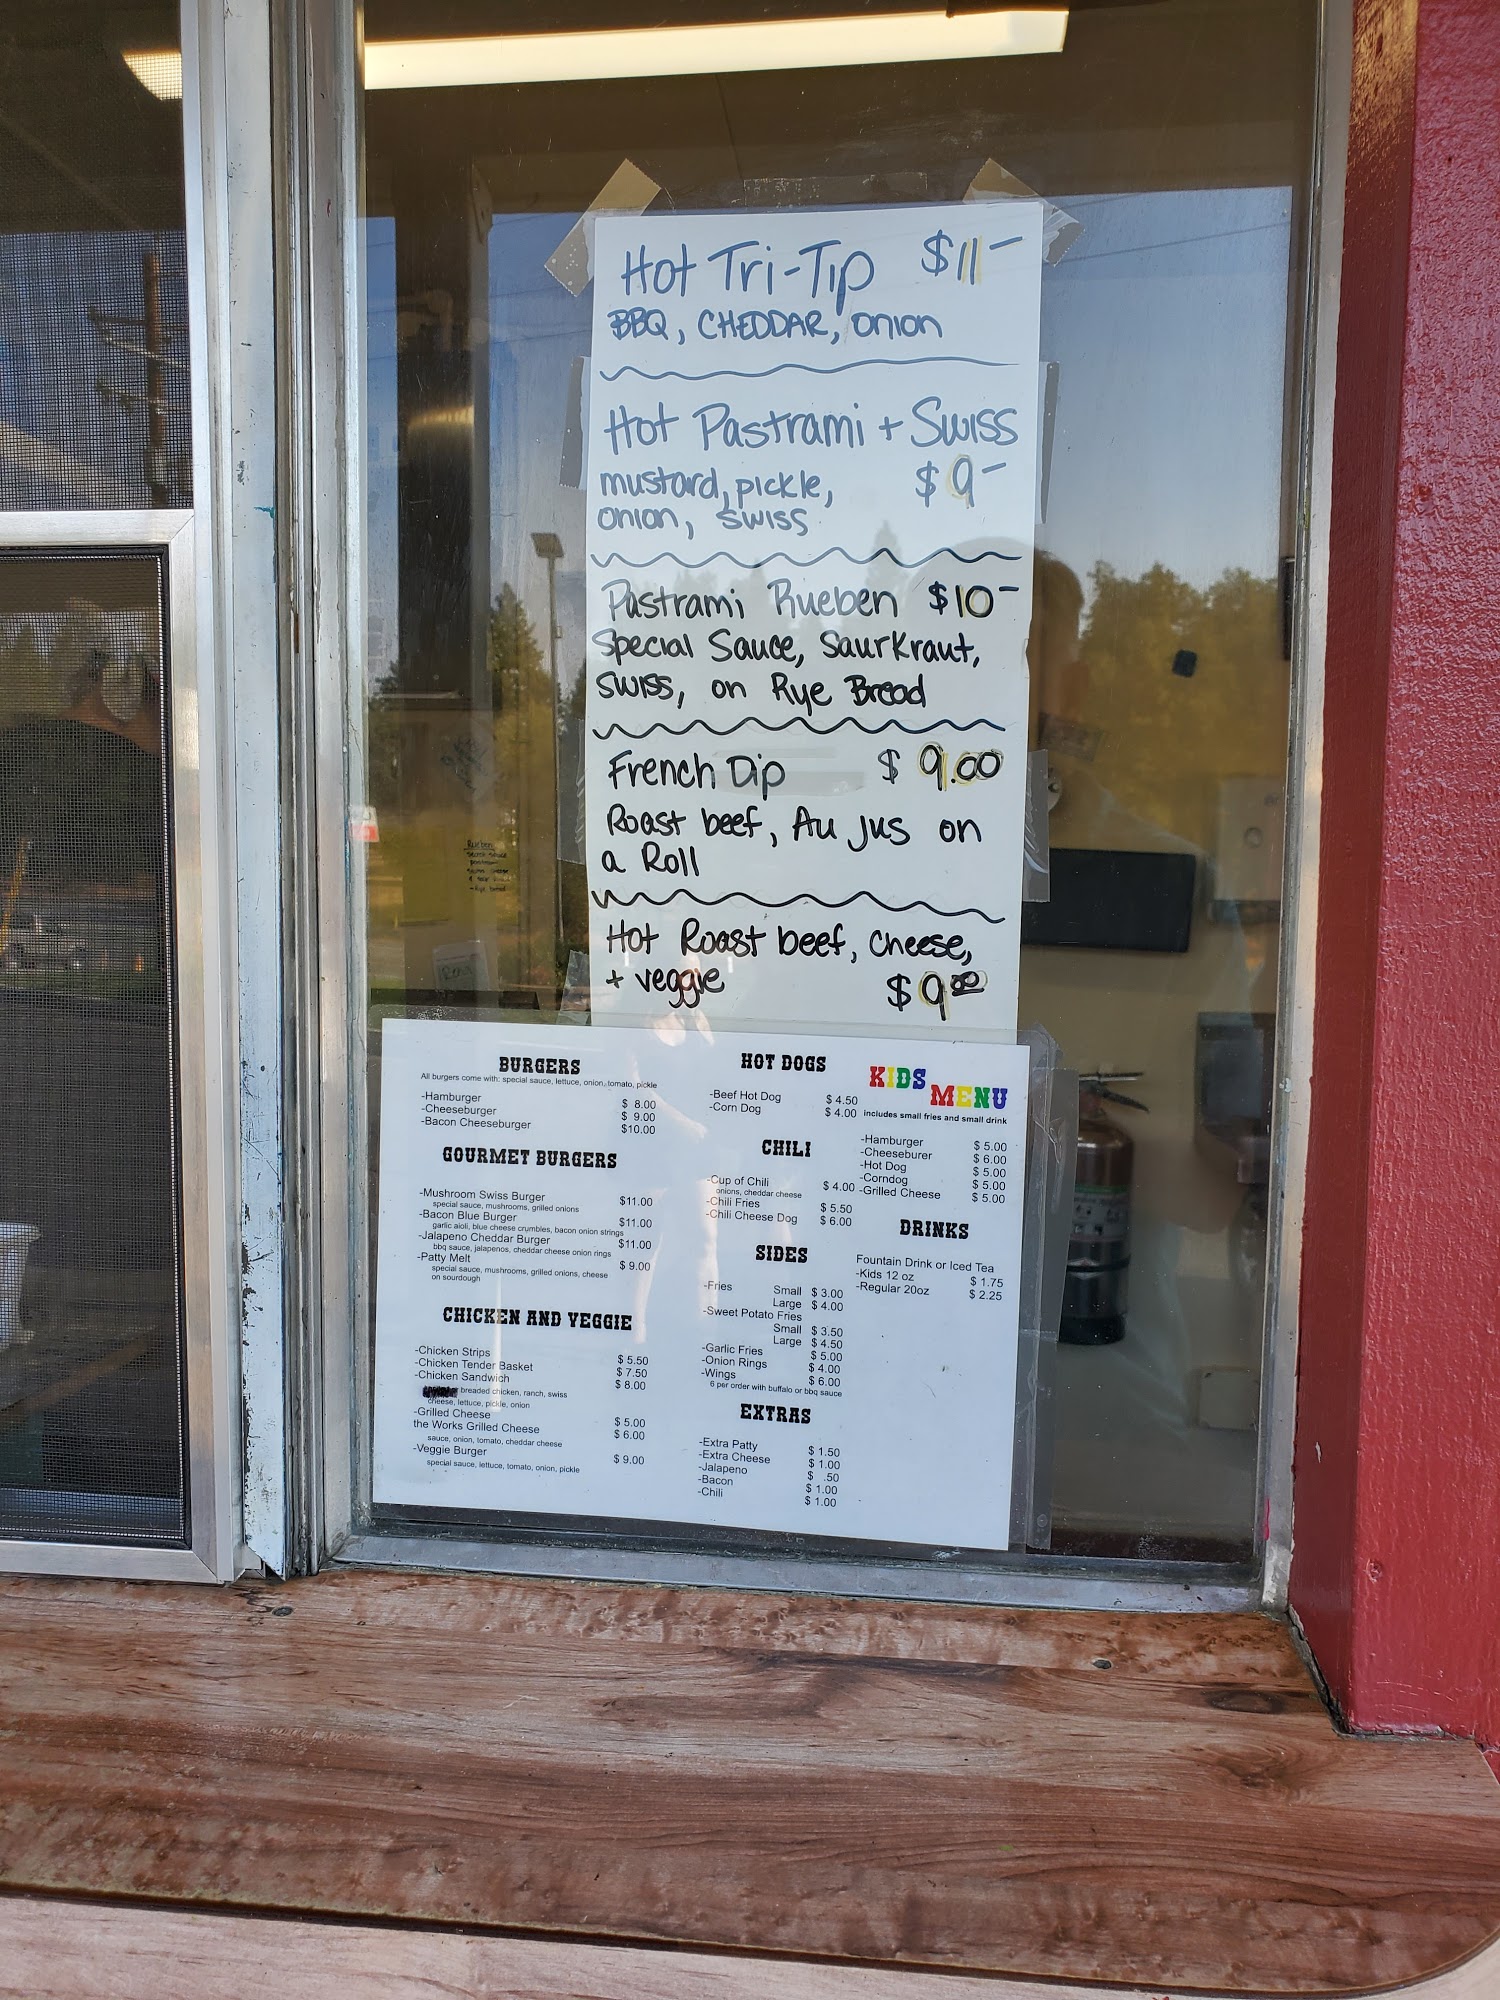 Hot Tri-Tip $11-
BBQ, CHEDDAR, onion
Hot Pastrami + Swiss
mustard, pickle, $9-
onion, swiss
Pastrami Rueben $10-
Special Sauce, SaurKraut,
Swiss, on Rye Bread
French Dip $ 9.00
Roast beef, Au jus on
a Roll
Hot Roast beef, cheese,
+ veggie $9.00
BURGERS
All burgers come with: special sauce, lettuce, onion, tomato, pickle
-Hamburger $ 8.00
-Cheeseburger $ 9.00
-Bacon Cheeseburger $10.00
GOURMET BURGERS
-Mushroom Swiss Burger $11.00
special sauce, mushrooms, grilled onions
-Bacon Blue Burger $11.00
garlic aioli, blue cheese crumbles, bacon onion strings
-Jalapeno Cheddar Burger $11.00
bbq sauce, jalapenos, cheddar cheese onion rings
-Patty Melt $ 9.00
special sauce, mushrooms, grilled onions, cheese
on sourdough
CHICKEN AND VEGGIE
-Chicken Strips $ 5.50
-Chicken Tender Basket $ 7.50
-Chicken Sandwich $ 8.00
breaded chicken, ranch, swiss
cheese, lettuce, pickle, onion
-Grilled Cheese $ 5.00
the Works Grilled Cheese $ 6.00
sauce, onion, tomato, cheddar cheese
-Veggie Burger $ 9.00
special sauce, lettuce, tomato, onion, pickle
HOT DOGS
-Beef Hot Dog $ 4.50
-Corn Dog $ 4.00
CHILI
-Cup of Chili $ 4.00
onions, cheddar cheese
-Chili Fries $ 5.50
-Chili Cheese Dog $ 6.00
SIDES
-Fries Small $ 3.00
Large $ 4.00
-Sweet Potato Fries
Small $ 3.50
Large $ 4.50
-Garlic Fries $ 5.00
-Onion Rings $ 4.00
-Wings $ 6.00
6 per order with buffalo or bbq sauce
EXTRAS
-Extra Patty $ 1.50
-Extra Cheese $ 1.00
-Jalapeno $ .50
-Bacon $ 1.00
-Chili $ 1.00
KIDS
MENU
includes small fries and small drink
-Hamburger $ 5.00
-Cheeseburer $ 6.00
-Hot Dog $ 5.00
-Corndog $ 5.00
-Grilled Cheese $ 5.00
DRINKS
Fountain Drink or Iced Tea
-Kids 12 oz $ 1.75
-Regular 20oz $ 2.25
Rueben